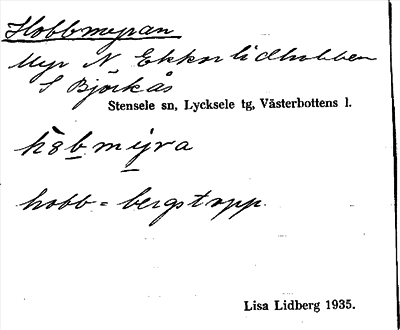 Hobbmyran
Myr N Ekkorlidhobben
S Björkås
Stensele sn, Lycksele tg, Västerbottens l.
håbmyra
hobb = bergstopp.
Lisa Lidberg 1935.